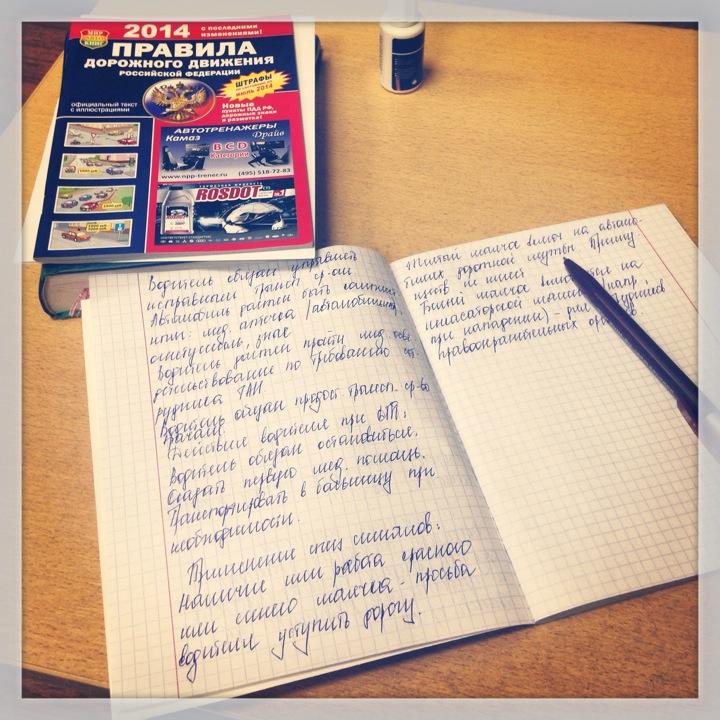 МИР
АВТО
КНИГ
2014
с последними
изменениями!
ПРАВИЛА
ДОРОЖНОГО ДВИЖЕНИЯ
РОССИЙСКОЙ ФЕДЕРАЦИИ
ШТРАФЫ
июль 2014
официальный текст
с иллюстрациями
Новые
пункты ПДД РФ,
дорожные знаки
и разметка!
АВТОТРЕНАЖЕРЫ
Камаз Драйв
B C D
Категории
www.npp-trener.ru (495) 518-72-83
ROSDOT
№1
Водитель обязан управлять
исправным трансп. ср-ом
Автомобиль должен быть
мед. аптечка (автомобильная),
огнетушитель, знак
Водитель должен пройти мед. осви
детельствование по требованию сот-
рудника ГАИ
Водитель обязан предост. трансп. ср-во
врачам.
Действие водителя при ДТП:
Водитель обязан остановиться.
Оказать первую мед. помощь.
Транспортировать в больницу при
необходимости.
Применение спец сигналов:
Наличие или работа красного
или синего маячка - просьба
водителя уступить дорогу.
Жёлтый маячок включ на автомо-
билях дорожной службы. Преиму
ществ не имеет
маячок
инкассаторской
при нападении) - для
правоохранительных органов.